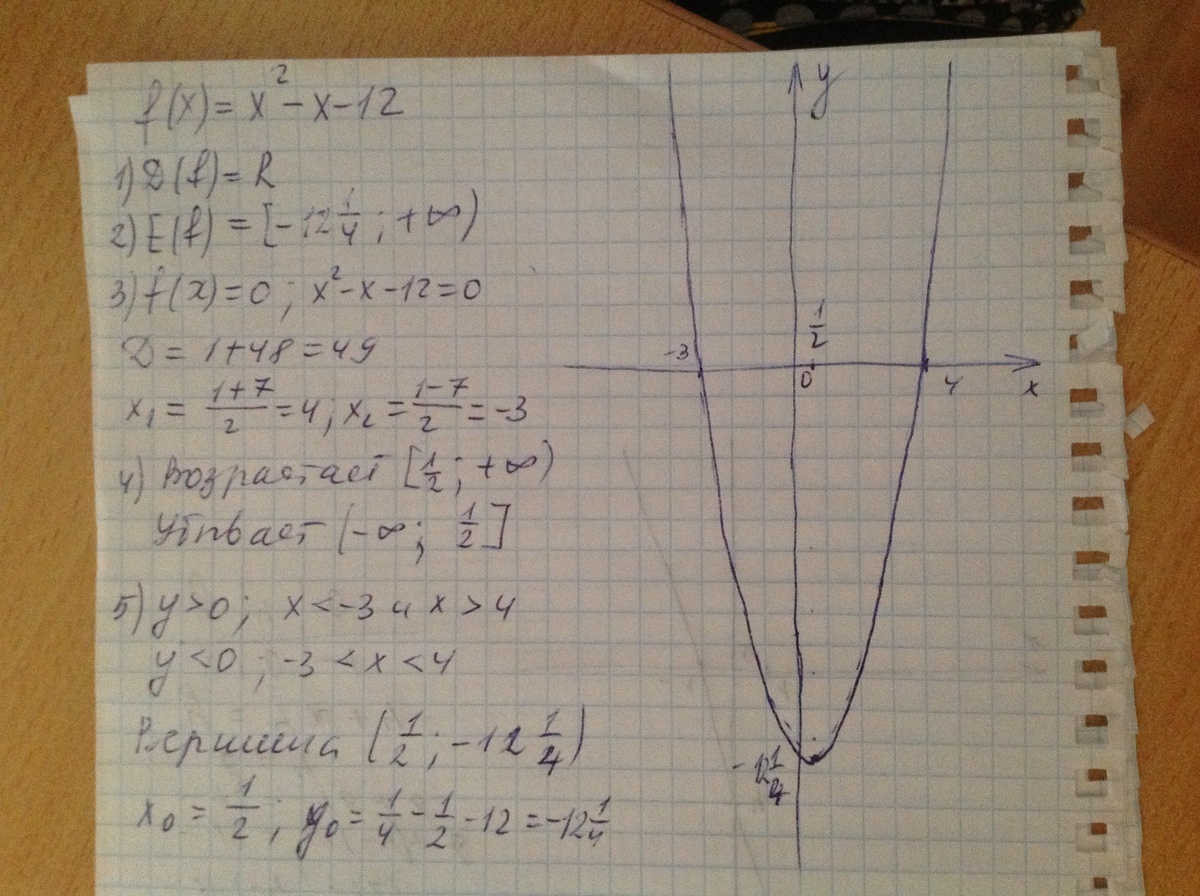 f(x) = x² - x - 12
1) D(f) = R
2) E(f) = [-12 1/4; +∞)
3) f(x) = 0; x² - x - 12 = 0
D = 1 + 48 = 49
x₁ = (1+7)/2 = 4; x₂ = (1-7)/2 = -3
4) Возрастает [1/2; +∞)
Убывает (-∞; 1/2]
5) y > 0; x < -3 и x > 4
y < 0; -3 < x < 4
Вершина (1/2; -12 1/4)
x₀ = 1/2; y₀ = 1/4 - 1/2 - 12 = -12 1/4
y
1/2
-3
0
4
x
-12 1/4